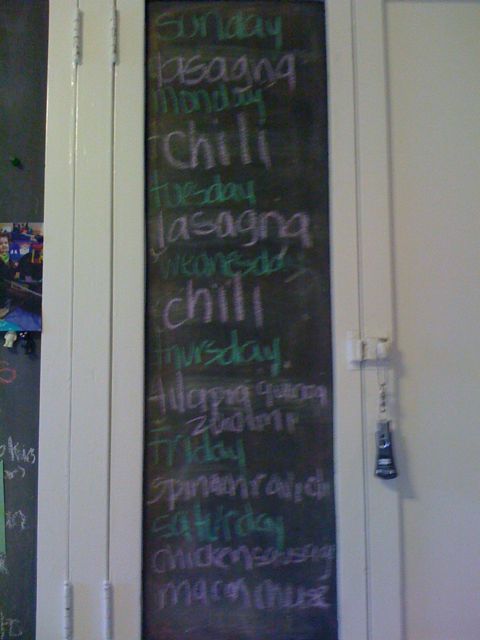 sunday
lasagna
monday
chili
tuesday
lasagna
wednesday
chili
thursday
tilapia quinoa
friday
saturday
chicken sausage
mac n cheese